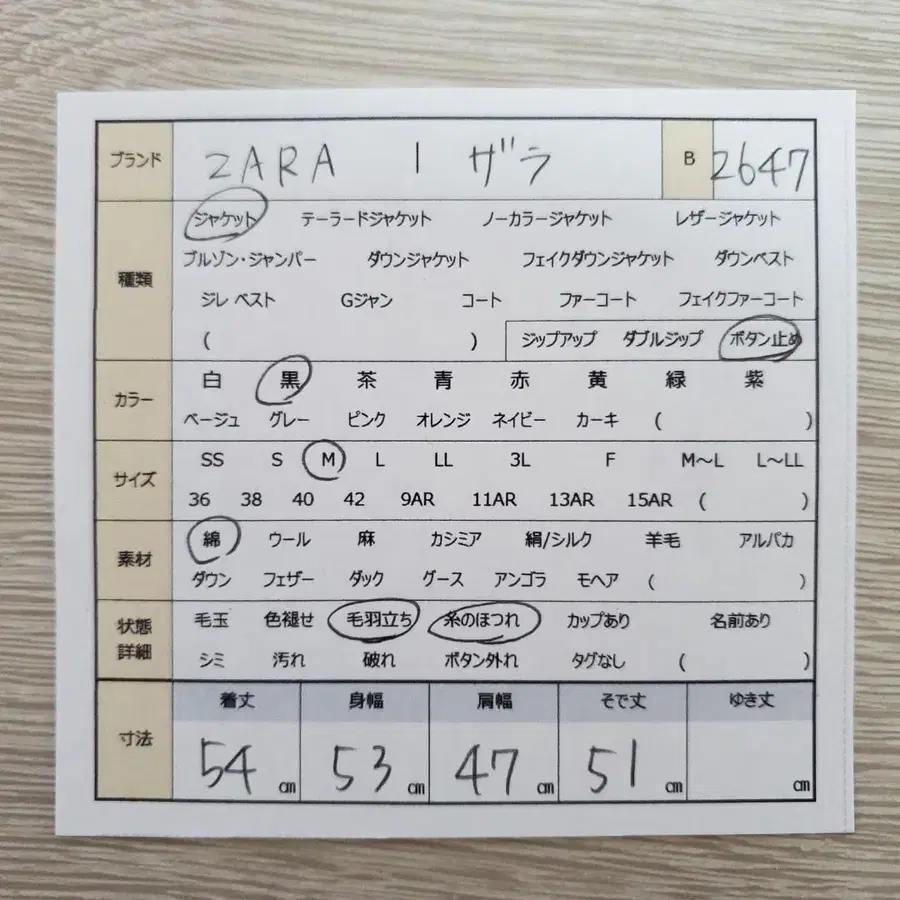 ブランド ZARA | ザラ B 2647
種類
ジャケット テーラードジャケット ノーカラージャケット レザージャケット
ブルゾン・ジャンパー ダウンジャケット フェイクダウンジャケット ダウンベスト
ジレ ベスト Gジャン コート ファーコート フェイクファーコート
( ) ジップアップ ダブルジップ ボタン止め
カラー
白 黒 茶 青 赤 黄 緑 紫
ベージュ グレー ピンク オレンジ ネイビー カーキ ( )
サイズ
SS S M L LL 3L F M～L L～LL
36 38 40 42 9AR 11AR 13AR 15AR ( )
素材
綿 ウール 麻 カシミア 絹/シルク 羊毛 アルパカ
ダウン フェザー ダック グース アンゴラ モヘア ( )
状態
詳細
毛玉 色褪せ 毛羽立ち 糸のほつれ カップあり 名前あり
シミ 汚れ 破れ ボタン外れ タグなし ( )
寸法
着丈 身幅 肩幅 そで丈 ゆき丈
54 ㎝ 53 ㎝ 47 ㎝ 51 ㎝ ㎝